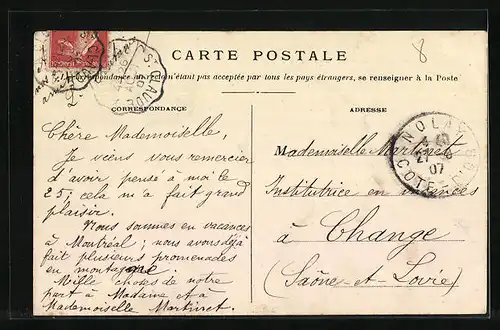 ST CLAUDE
CARTE POSTALE
8
La Correspondance au recto n'étant pas acceptée par tous les pays étrangers, se renseigner à la Poste
CORRESPONDANCE
ADRESSE
Chère Mademoiselle,
Je viens vous remercier
d'avoir pensé à moi le
25; cela m'a fait grand
plaisir.
Nous sommes en vacances
à Montréal; nous avons déjà
fait plusieurs promenades
en montagne.
Mille choses de notre
part à Madame et à
Mademoiselle Martinet
NOLAY
07
COTE D'OR
Mademoiselle Martinet
Institutrice en vacances
à Change
(Saône-et-Loire)